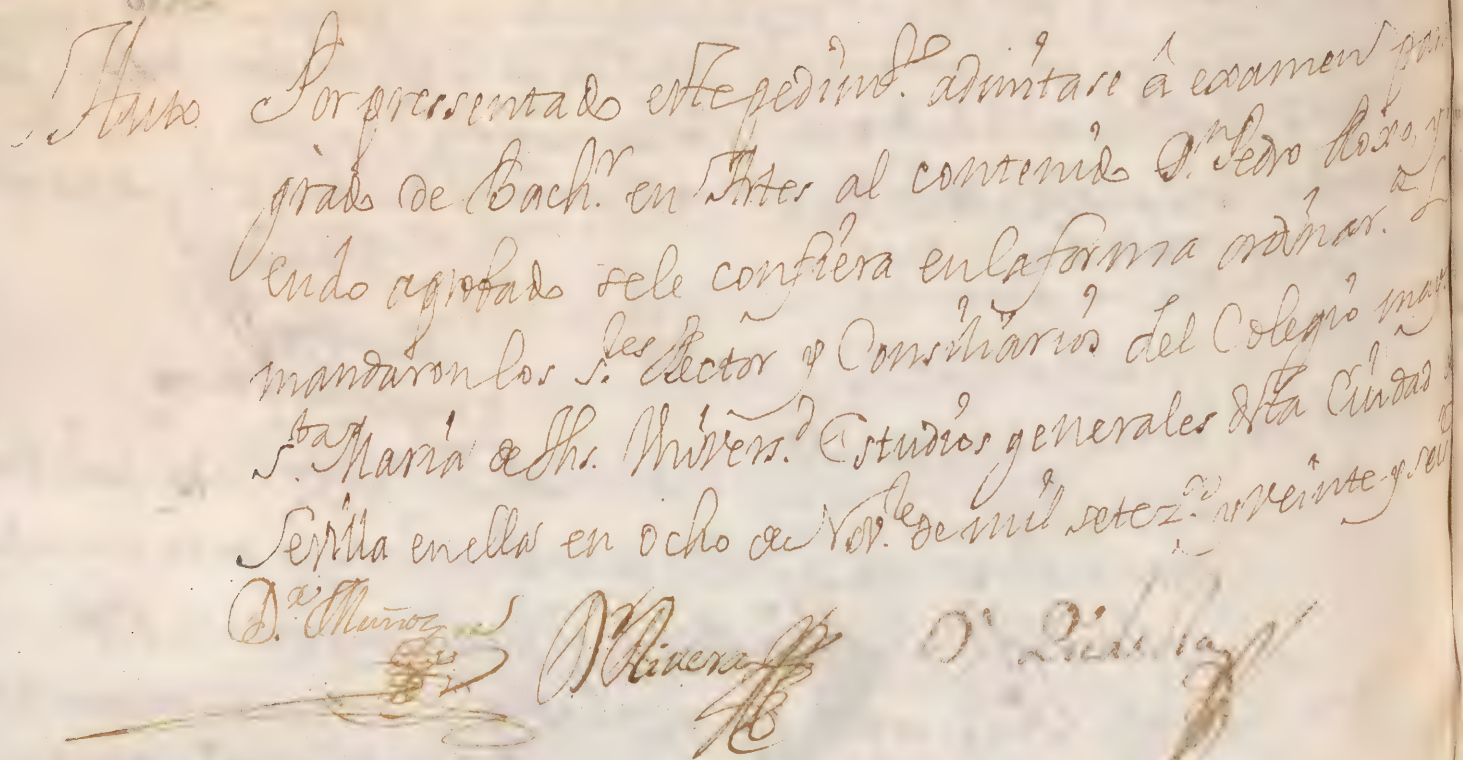 Auto Por pressentado este pedimto. admitase â examen para
grado de Bachr. en Artes al contenido Dn. Pedro Roxo, y
endo aprobado sele confiera enlaforma ordinar.a
mandaron los S.res Rector y Consiliarios del Colegio may
S.ta Maria de Jhs. Univers.d Estudios generales desta Ciudad
Sevilla enella en ocho de Nov.re de mil setez.os y veinte y seis
D.or Muñoz D Rivera D.r